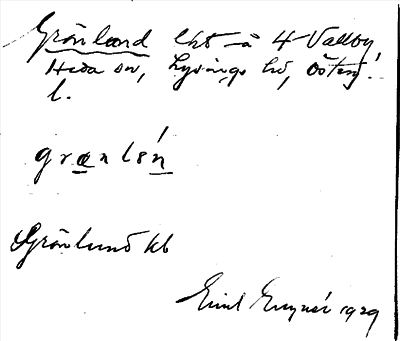 Grönlund lht å 4 Valby
Heda sn, Lysings hd, Österg.
l.
grœnlśn
Grönlund kb
Emil Enqnér 1929